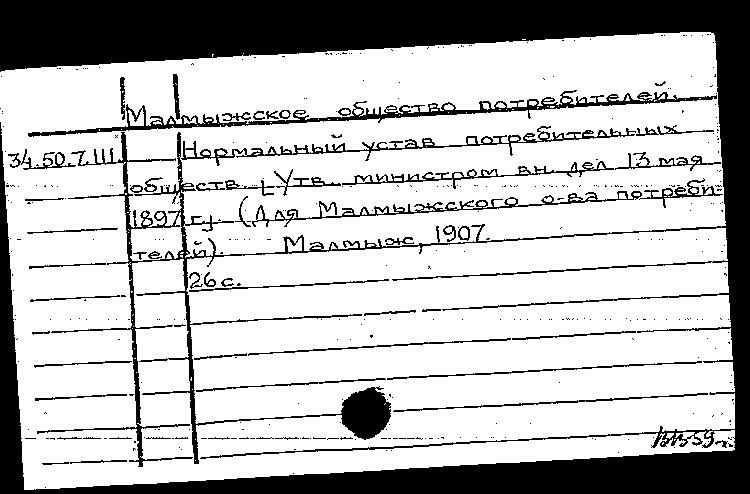 Малмыжское общество потребителей.
34.50.7.III. Нормальный устав потребительных
обществ. [Утв. министром вн. дел 13 мая
1897 г.]. (Для Малмыжского о-ва потреби-
телей). Малмыж, 1907.
26 с.